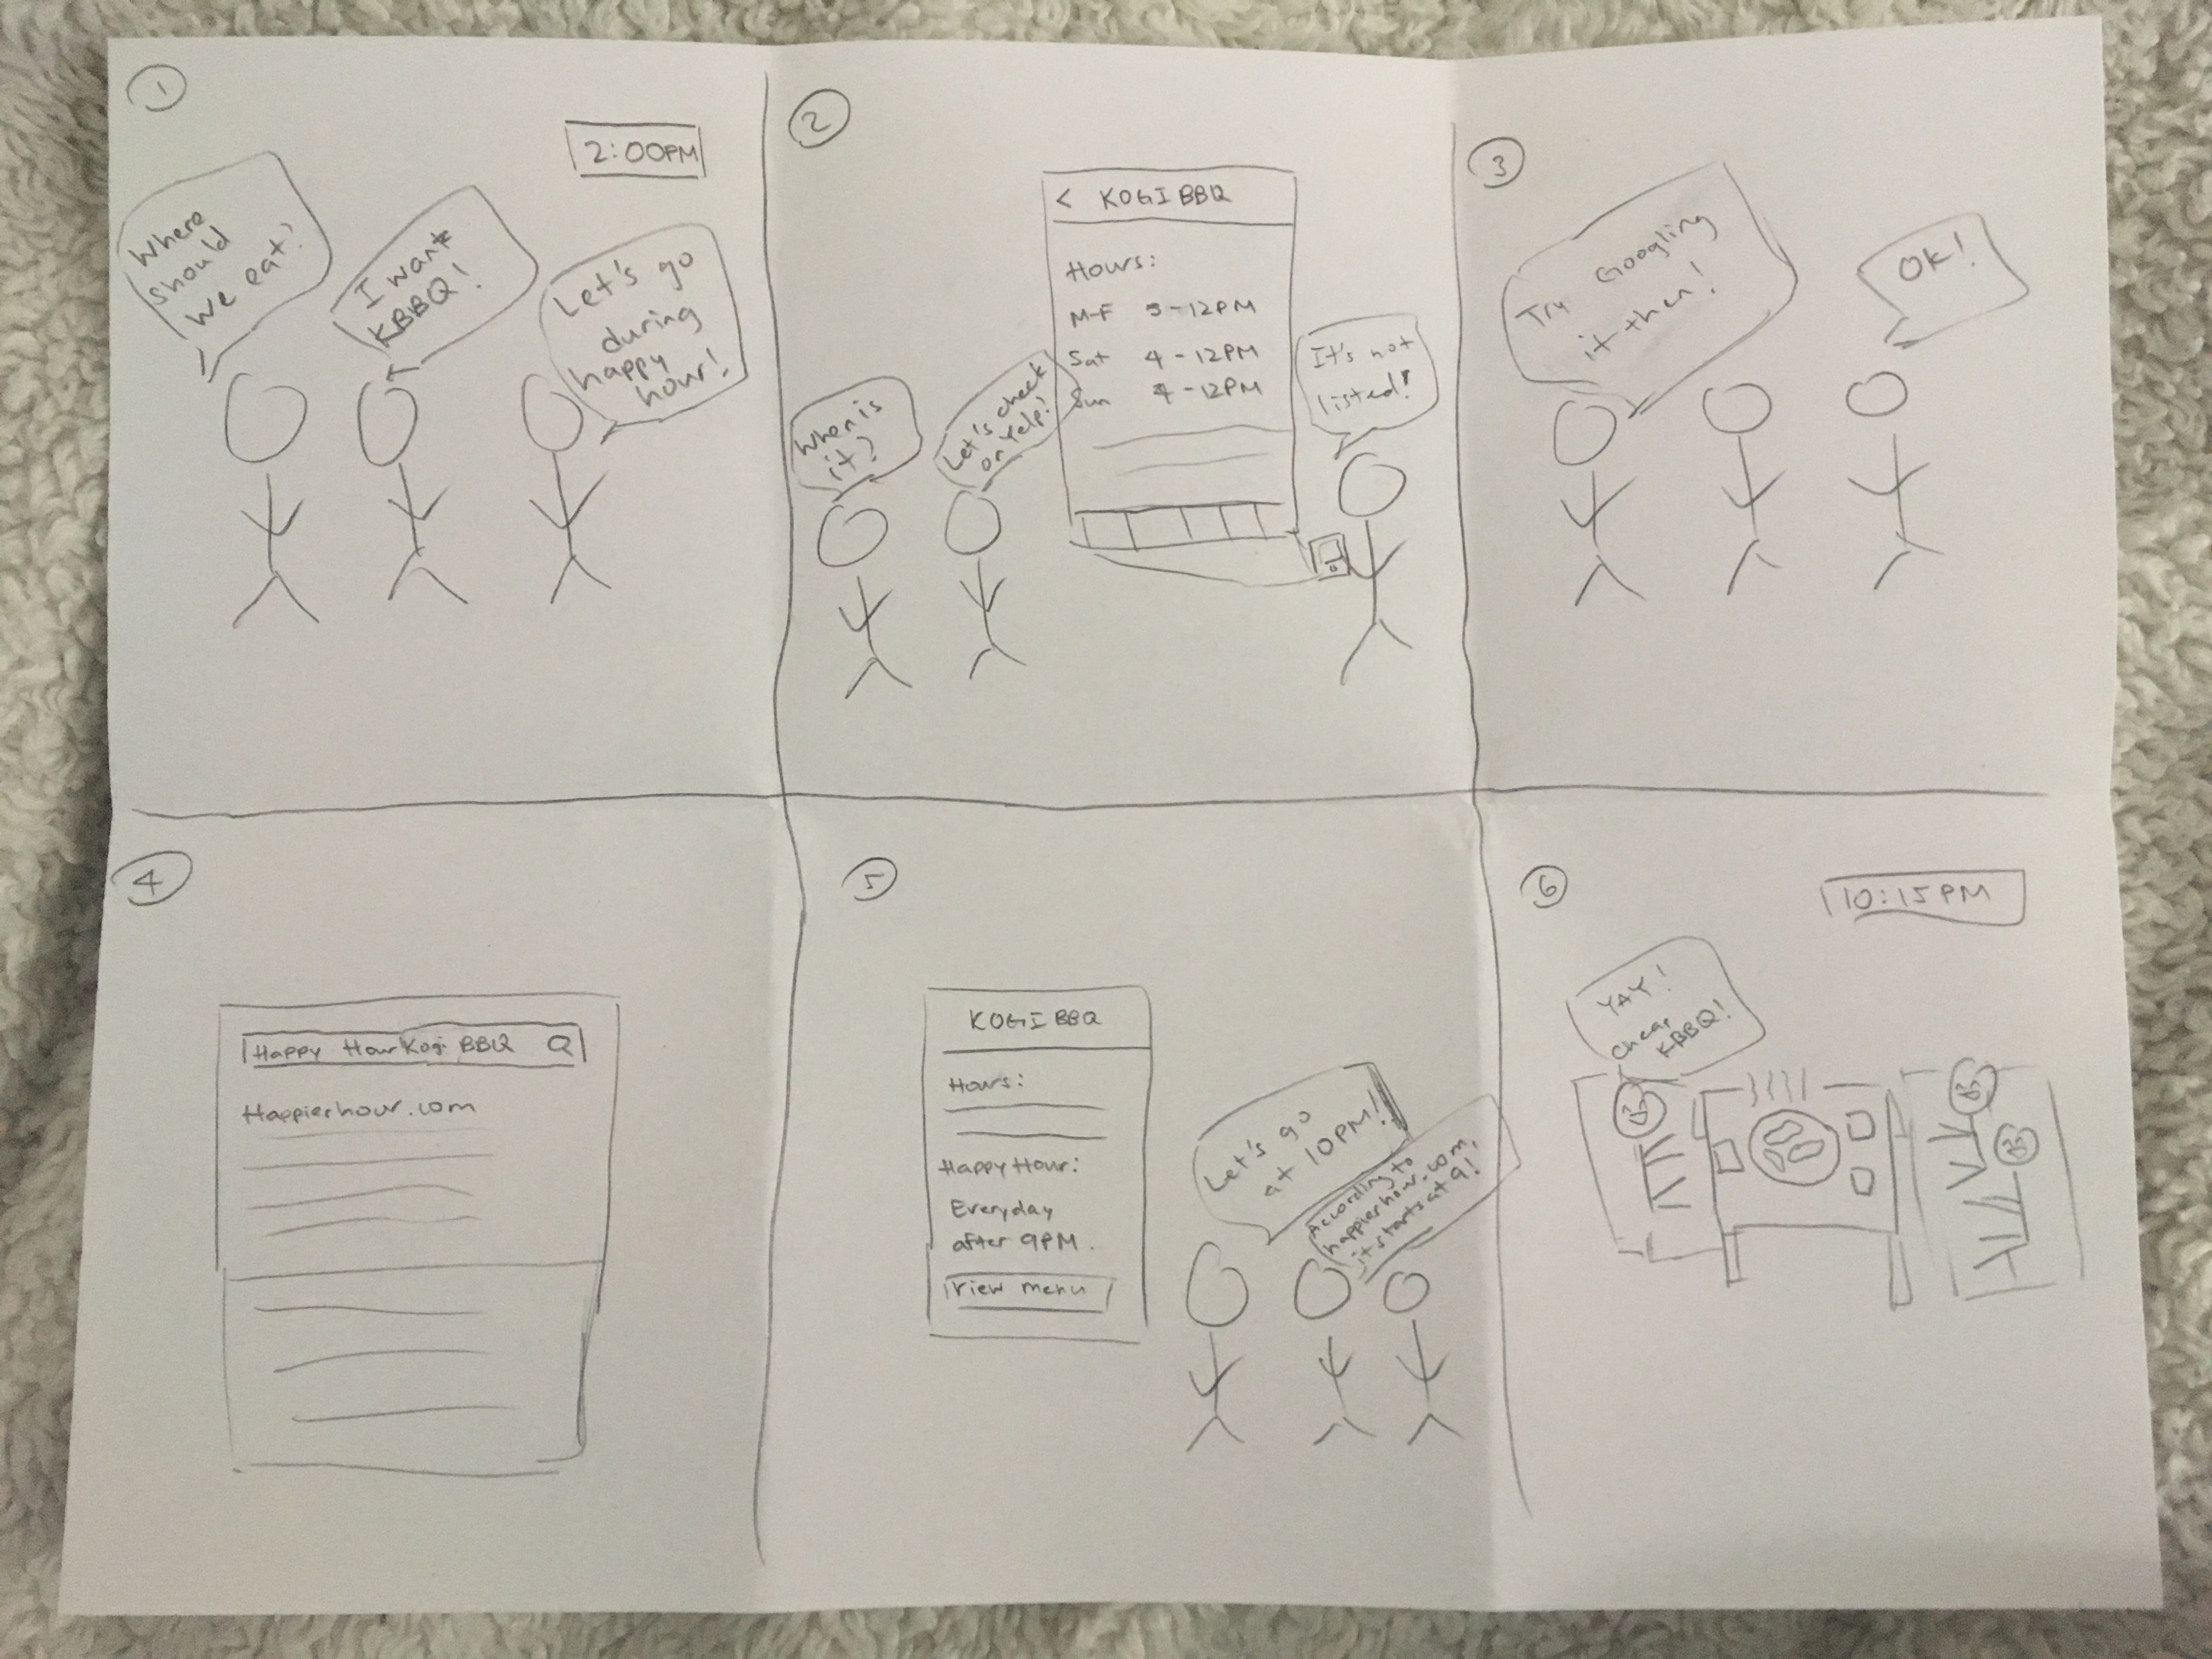 1
2:00PM
Where
should
we eat?
I want
KBBQ!
Let's go
during
happy
hour!
2
When is
it?
Let's check
on Yelp!
< KOGI BBQ
Hours:
M-F 5-12PM
Sat 4-12PM
Sun 4-12PM
It's not
listed!
3
Try Googling
it then!
OK!
4
Happy Hour Kogi BBQ
Happierhour.com
5
KOGI BBQ
Hours:
Happy Hour:
Everyday
after 9PM.
View menu
Let's go
at 10PM!
According to
happierhour.com,
it starts at 9!
6
10:15PM
YAY!
cheap
KBBQ!